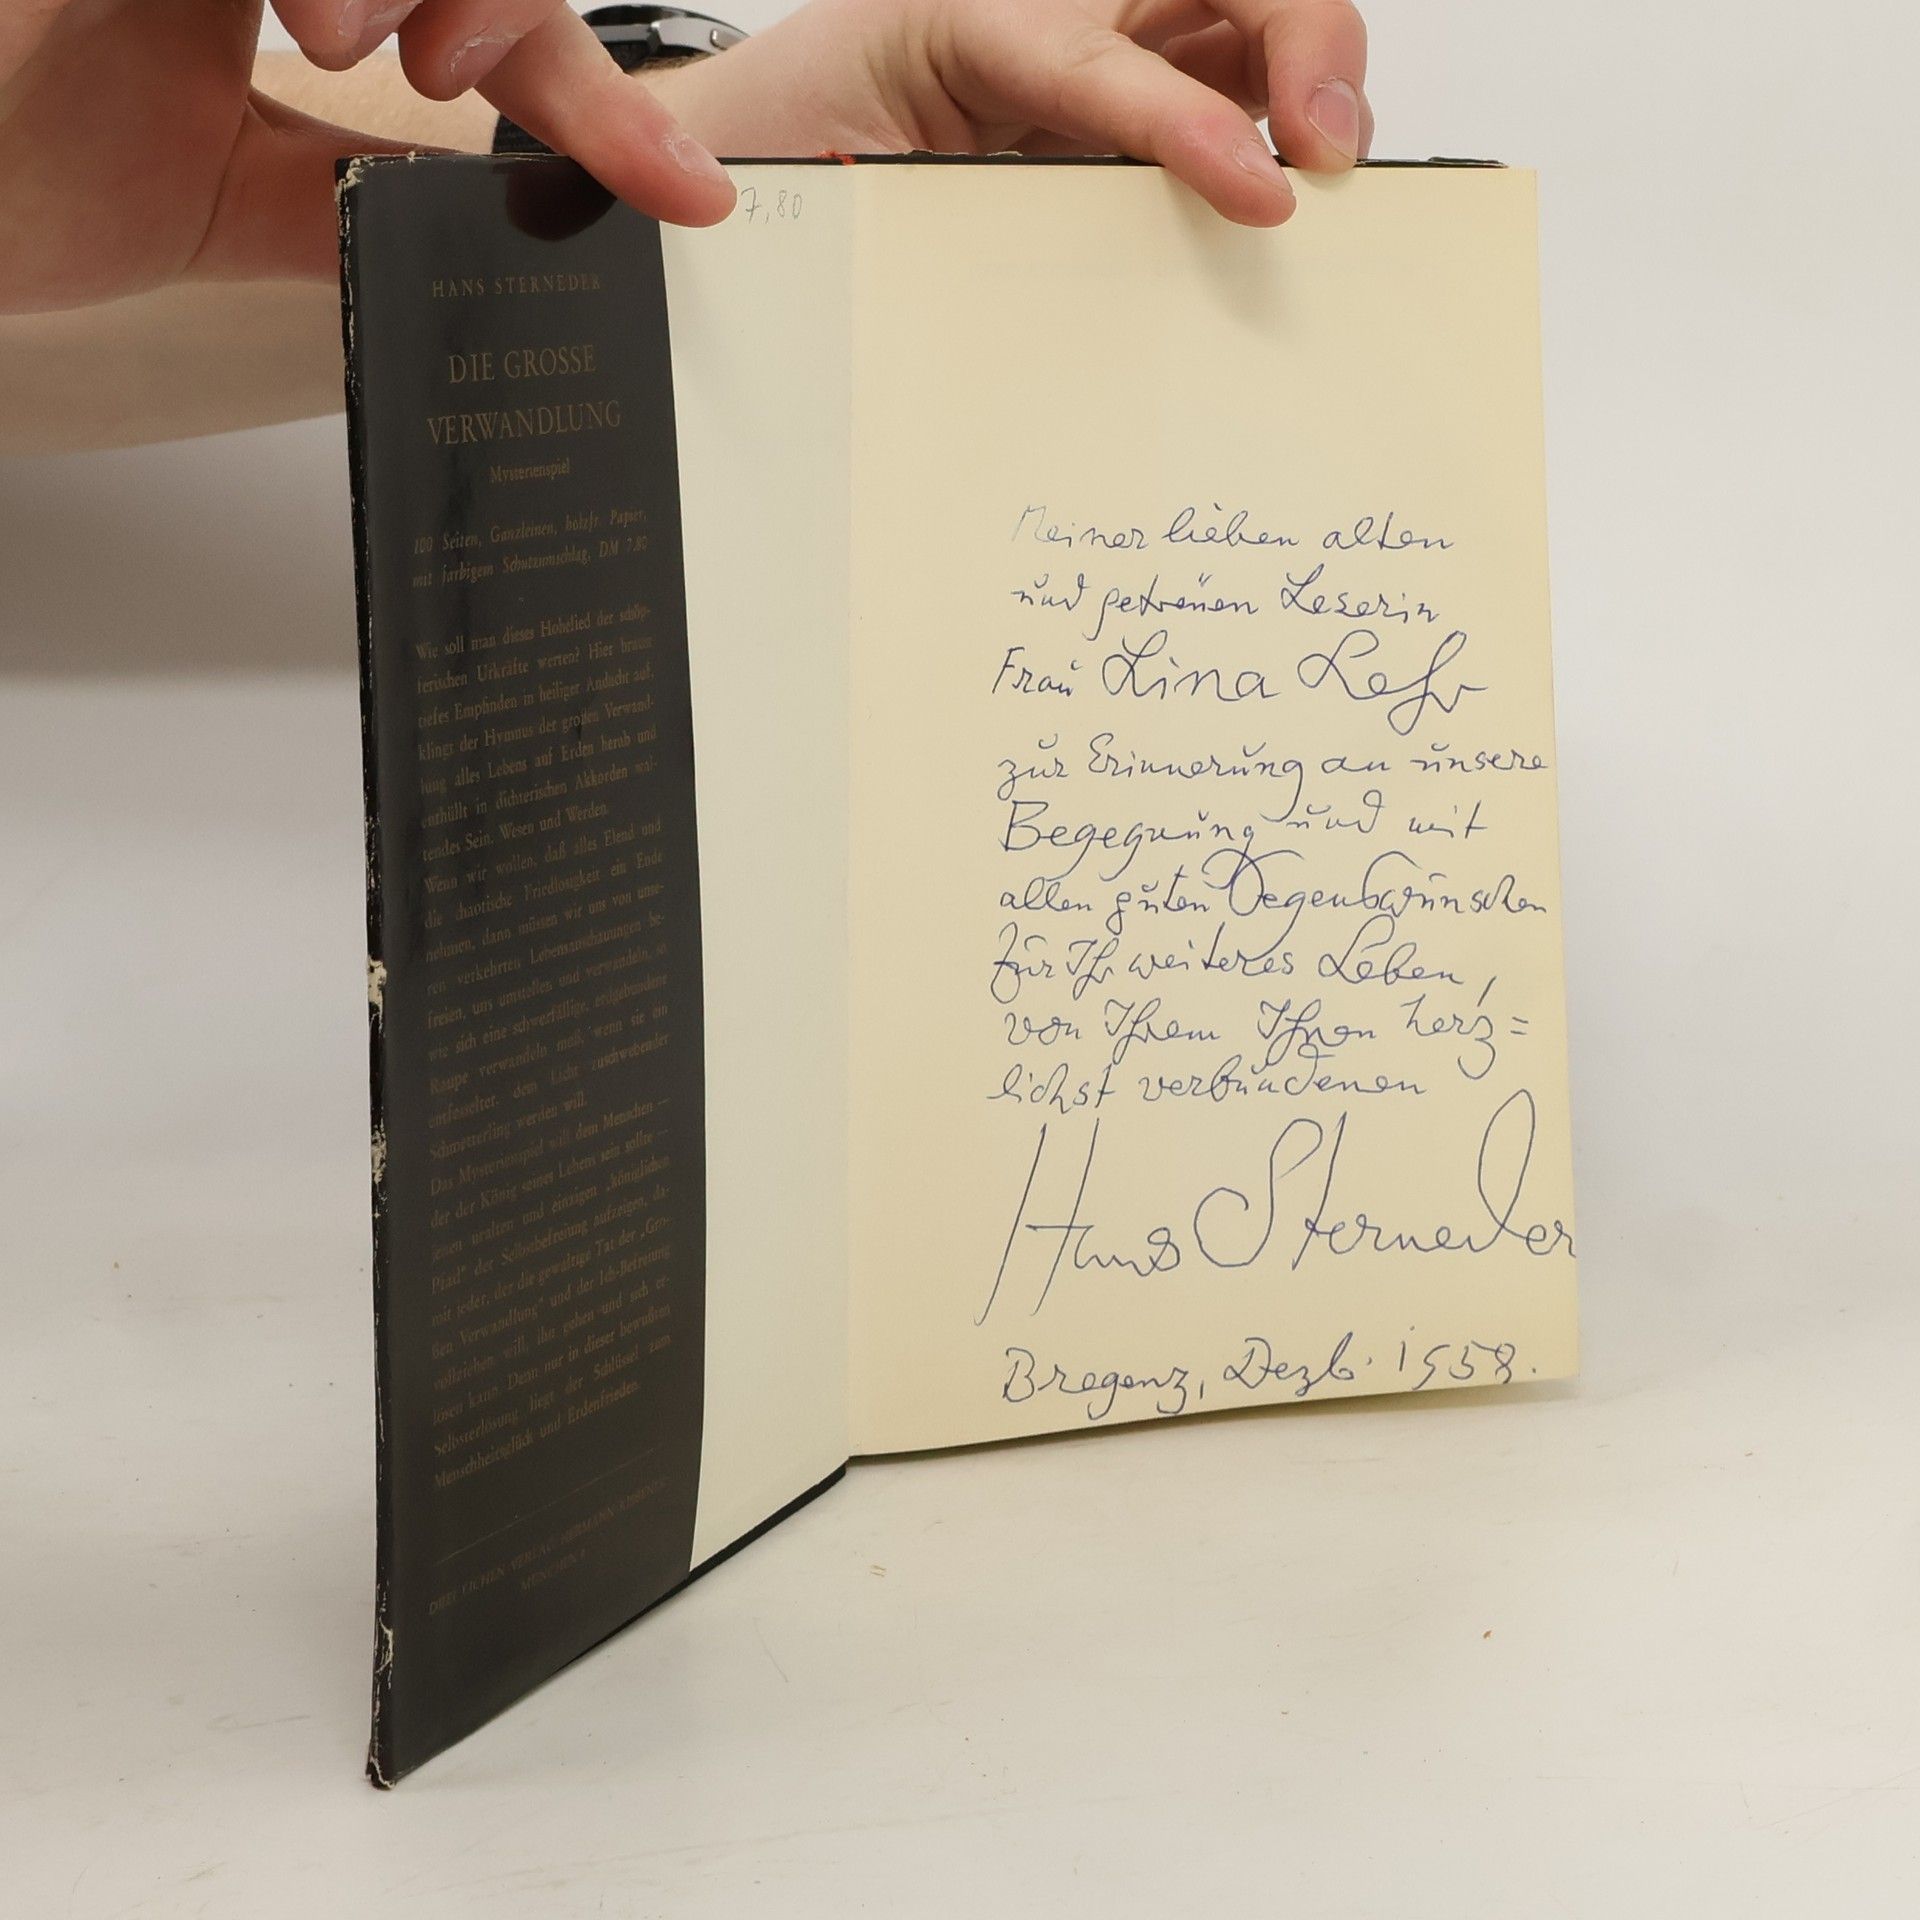 HANS STERNEDER
DIE GROSSE
VERWANDLUNG
Mysterienspiel
100 Seiten, Ganzleinen, holzfr. Papier,
mit farbigem Schutzumschlag, DM 7.80
Wie soll man dieses Hohelied der schöp-
ferischen Urkräfte werten? Hier braust
tiefes Empfinden in heiliger Andacht auf,
klingt der Hymnus der großen Verwand-
lung alles Lebens auf Erden herab und
enthüllt in dichterischen Akkorden wal-
tendes Sein, Wesen und Werden.
Wenn wir wollen, daß alles Elend und
die chaotische Friedlosigkeit ein Ende
nehmen, dann müssen wir uns von unse-
ren verkehrten Lebensanschauungen be-
freien, uns umstellen und verwandeln, so
wie sich eine schwerfällige, erdgebundene
Raupe verwandeln muß, wenn sie ein
entfesselter, dem Licht zuschwebender
Schmetterling werden will.
Das Mysterienspiel will dem Menschen —
der der König seines Lebens sein sollte —
jenen uralten und einzigen „königlichen
Pfad“ der Selbstbefreiung aufzeigen, da-
mit jeder, der die gewaltige Tat der „Gro-
ßen Verwandlung“ und der Ich-Befreiung
vollziehen will, ihn gehen und sich er-
lösen kann. Denn nur in dieser bewußten
Selbsterlösung liegt der Schlüssel zum
Menschheitsglück und Erdenfrieden.
DREI EICHEN VERLAG HERMANN KISSENER
MÜNCHEN
7,80
Meiner lieben alten
und getreuen Leserin
Frau Lina Lehr
zur Erinnerung an unsere
Begegnung und mit
allen guten Segenswünschen
für Ihr weiteres Leben,
von Ihrem Ihnen herz=
lichst verbundenen
Hans Sterneder
Bregenz, Dezb. 1958.